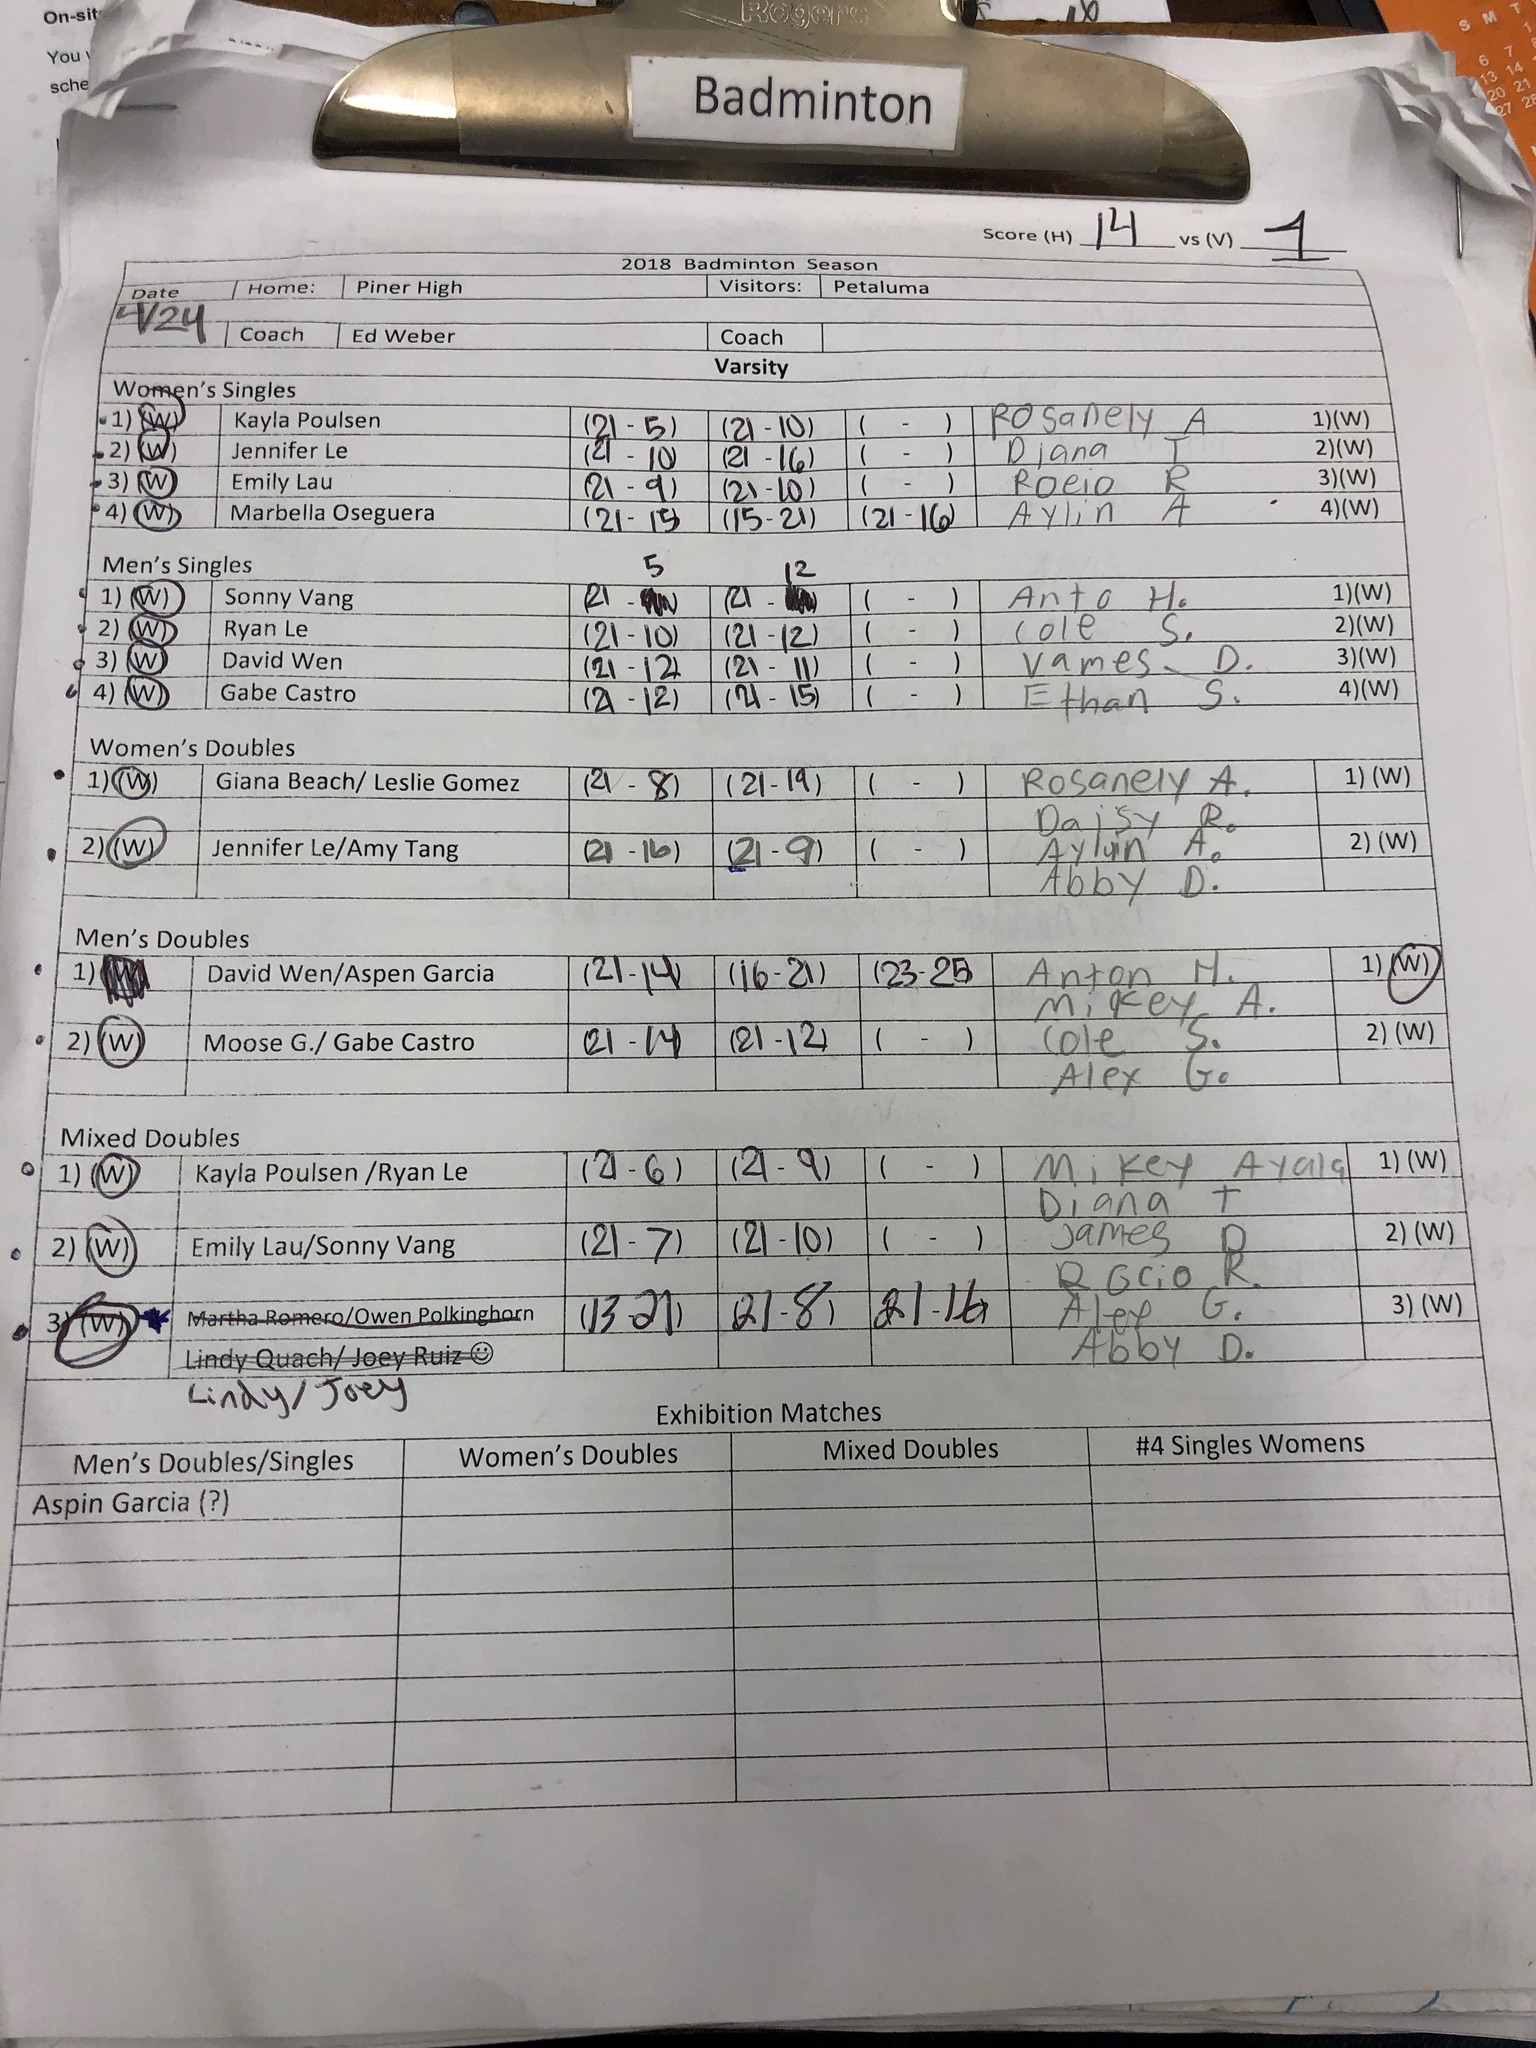 On-sit
You
sche
Rogers
Badminton
S M T
6 7
13 14
20 21
27 28
Score (H) 14 vs (V) 1
2018 Badminton Season
Date Home: Piner High Visitors: Petaluma
4/24
Coach Ed Weber Coach
Varsity
Women's Singles
1) (W) Kayla Poulsen (21 - 5) (21 - 10) ( - ) Rosanely A 1)(W)
2) (W) Jennifer Le (21 - 10 (21 - 16) ( - ) Diana T 2)(W)
3) (W) Emily Lau (21 - 9) (21-10) ( - ) Rocio R 3)(W)
4) (W) Marbella Oseguera (21-15) (15-21) (21-16) Aylin A 4)(W)
Men's Singles 5 12
1) (W) Sonny Vang (21 - (21 - ( - ) Anto H. 1)(W)
2) (W) Ryan Le (21-10) (21-12) ( - ) Cole S. 2)(W)
3) (W) David Wen (21-12) (21 - 11) ( - ) Vames D. 3)(W)
4) (W) Gabe Castro (21-12) (21-15) ( - ) Ethan S. 4)(W)
Women's Doubles
1) (W) Giana Beach/ Leslie Gomez (21 - 8) (21-19) ( - ) Rosanely A. 1) (W)
Daisy R.
2) (W) Jennifer Le/Amy Tang (21-16) (21-9) ( - ) Aylin A. 2) (W)
Abby D.
Men's Doubles
1) David Wen/Aspen Garcia (21-14) (16-21) (23-25) Anton H. 1) (W)
Mikey A.
2) (W) Moose G./ Gabe Castro (21-14) (21-12) ( - ) Cole S. 2) (W)
Alex G.
Mixed Doubles
1) (W) Kayla Poulsen /Ryan Le (21-6) (21-9) ( - ) Mikey Ayala 1) (W)
Diana T
2) (W) Emily Lau/Sonny Vang (21-7) (21-10) ( - ) James D 2) (W)
Rocio R.
3) (W) Martha Romero/Owen Polkinghorn (13-21) (21-8) 21-16) Alex G. 3) (W)
Lindy Quach/ Joey Ruiz ☺ Abby D.
Lindy/Joey
Exhibition Matches
Men's Doubles/Singles Women's Doubles Mixed Doubles #4 Singles Womens
Aspin Garcia (?)